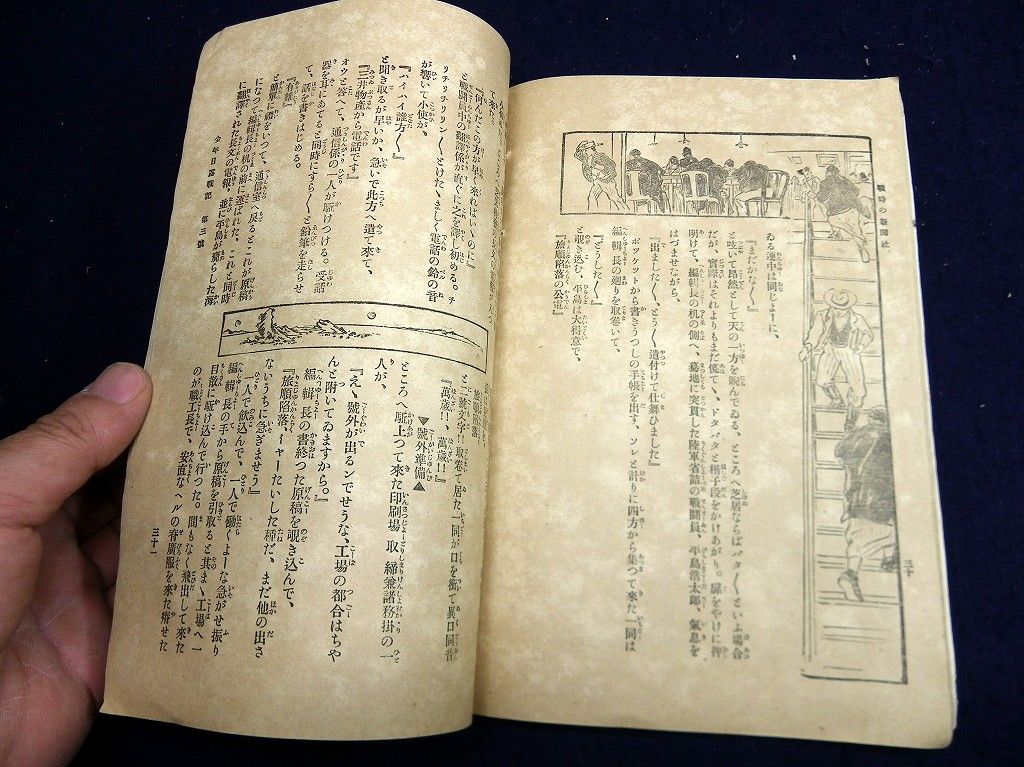 戰時の新聞社
ゐる連中は同じよーに、
『まだかな〱』
と呟いて昂然として天の一方を睨んでゐる、ところへ芝居ならばバタ〱といふ場合
だが、實際はそれよりもまだ慌てて、ドタバタと梯子段をかけあがり、扉をやけに押
明けて、編輯長の机の側へ、驀地に突貫した陸軍省詰の戰鬪員、平島浩太郎、氣息を
はづませながら、
『出ました〱、とう〱遣付けて仕舞ひました』
ポツケツトから書きうつしの手帳を出す、ソレと計りに四方から集つて來た一同は
編輯長の廻りを取卷いて、
『どうした〱』
と覗き込む、平島は大得意で、
『旅順陷落の公電』
三十
て來た。
『何んだこの方が早く來ればいゝのに』
と戰鬪員中の翻譯係が直ぐに之を譯し初める。チ
リチリチリリン〱、とけたゝましく電話の鈴の音
が響いて小使が、
『ハイハイ誰方〱』
と聞き取るが早いか、急いで此方へ遣て來て、
『三井物產から電話です』
オウと答へて、通信係の一人が駈けつける。受話
器を耳にあてると同時にすら〱と鉛筆を走らせ
て、話を書きはじめる。
『有難』
と簡單に禮をいつて、通信室へ戻るとこれが原稿
になつて編輯長の机の前に運ばれた、これと同時
に翻譯された長文の電報、並に平島が齎らした海
少年日露戰記 第三號
と二號文字!! 取卷て居た一同が口を衝て異口同音
『萬歲!!、萬歲!!』
▼號外準備▲
ところへ駈上つて來た印刷場取締兼諸務掛の一
人が、
『え、號外が出るンでせうな、工場の都合はちや
んと附いてゐますから。』
編輯長の書終つた原稿を覗き込んで、
『旅順陷落、イャーたいした種だ、まだ他の出さ
ないうちに急ぎませう』
一人で飮込んで、一人で働くよーな急がせ振り
編輯長の手から原稿を引取ると其まゝ工場へ一
目散に駈け込んで行つた。間もなく飛出して來た
のが職工長で、安直なヘルの脊廣服を來た瘠せた
三十一